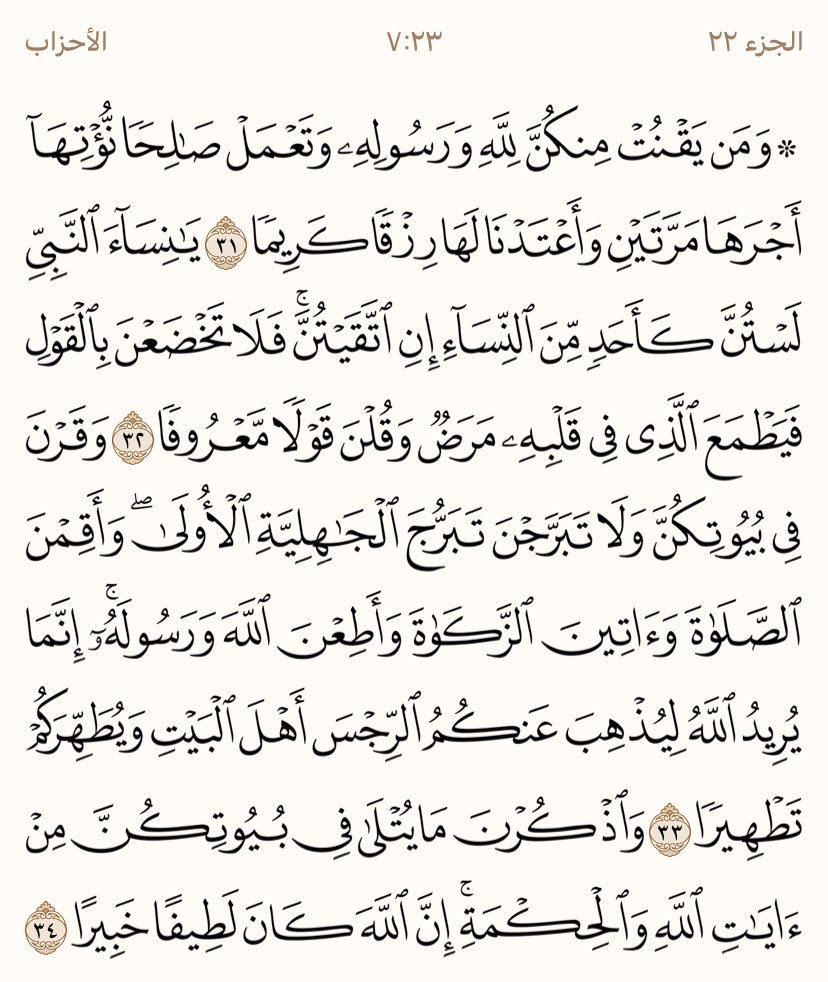 الجزء ٢٢ ٧:٢٣ الأحزاب
۞ وَمَن يَقْنُتْ مِنكُنَّ لِلَّهِ وَرَسُولِهِۦ وَتَعْمَلْ صَٰلِحًا نُّؤْتِهَآ
أَجْرَهَا مَرَّتَيْنِ وَأَعْتَدْنَا لَهَا رِزْقًا كَرِيمًا ٣١ يَٰنِسَآءَ ٱلنَّبِيِّ
لَسْتُنَّ كَأَحَدٍ مِّنَ ٱلنِّسَآءِ إِنِ ٱتَّقَيْتُنَّۚ فَلَا تَخْضَعْنَ بِٱلْقَوْلِ
فَيَطْمَعَ ٱلَّذِى فِى قَلْبِهِۦ مَرَضٌ وَقُلْنَ قَوْلًا مَّعْرُوفًا ٣٢ وَقَرْنَ
فِى بُيُوتِكُنَّ وَلَا تَبَرَّجْنَ تَبَرُّجَ ٱلْجَٰهِلِيَّةِ ٱلْأُولَىٰۖ وَأَقِمْنَ
ٱلصَّلَوٰةَ وَءَاتِينَ ٱلزَّكَوٰةَ وَأَطِعْنَ ٱللَّهَ وَرَسُولَهُۥٓۚ إِنَّمَا
يُرِيدُ ٱللَّهُ لِيُذْهِبَ عَنكُمُ ٱلرِّجْسَ أَهْلَ ٱلْبَيْتِ وَيُطَهِّرَكُمْ
تَطْهِيرًا ٣٣ وَٱذْكُرْنَ مَا يُتْلَىٰ فِى بُيُوتِكُنَّ مِنْ
ءَايَٰتِ ٱللَّهِ وَٱلْحِكْمَةِۚ إِنَّ ٱللَّهَ كَانَ لَطِيفًا خَبِيرًا ٣٤